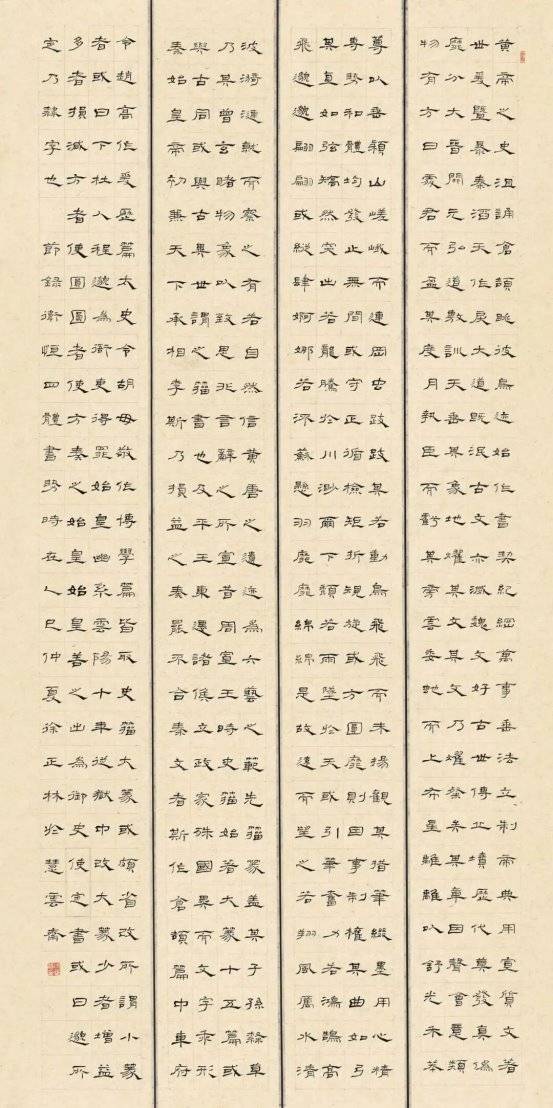 黃帝之史沮誦倉頡眺彼鳥迹始作書契紀綱萬事垂法立制帝典用宣質文著
世爰暨暴秦滔天作戾大道既泯古文亦滅魏文好古世傳丘墳歷代莫發真偽
靡分大晉開元弘道敷訓天垂其象地耀其文其文乃耀粲矣其章因聲會意類
物有方日處君而盈其度月執臣而虧其旁雲委蛇而上布星離離以舒光禾苯
尊以垂穎山嵯峨而連岡虫跂跂其若動鳥飛飛而未揚觀其措筆綴墨用心精
專勢和體均發止無間或守正循檢矩折規旋或方圓靡則因事制權其曲如弓
其直如弦矯然突出若龍騰於川渺爾下頹若雨墜於天或引筆奮力若鴻鵠高
飛邈邈翩翩或縱肆婀娜若流蘇懸羽靡靡綿綿是故遠而望之若翔風厲水清
波漪漣就而察之有若自然信黃唐之遺迹為六藝之範先籀篆蓋其子孫隸草
乃其曾玄睹物象以致思非言辭之所宣昔周宣王時史籀始著大篆十五篇或
與古同或與古異世謂之籀書也及平王東遷諸侯立政家殊國異而文字乖形
秦始皇帝初兼天下承相李斯乃損益之奏罷不合秦文者斯作倉頡篇中車府
令趙高作爰歷篇太史令胡毋敬作博學篇皆取史籀大篆或頗省改所謂小篆
者或曰下杜人程邈為衙吏得罪始皇幽系雲陽十年從獄中改大篆少者增益
多者損減方者使圓圓者使方奏之始皇始皇善之出為御史使定書或曰邈所
定乃隸字也 節錄衛恆四體書勢時在乙巳仲夏徐正林於慧雲齋